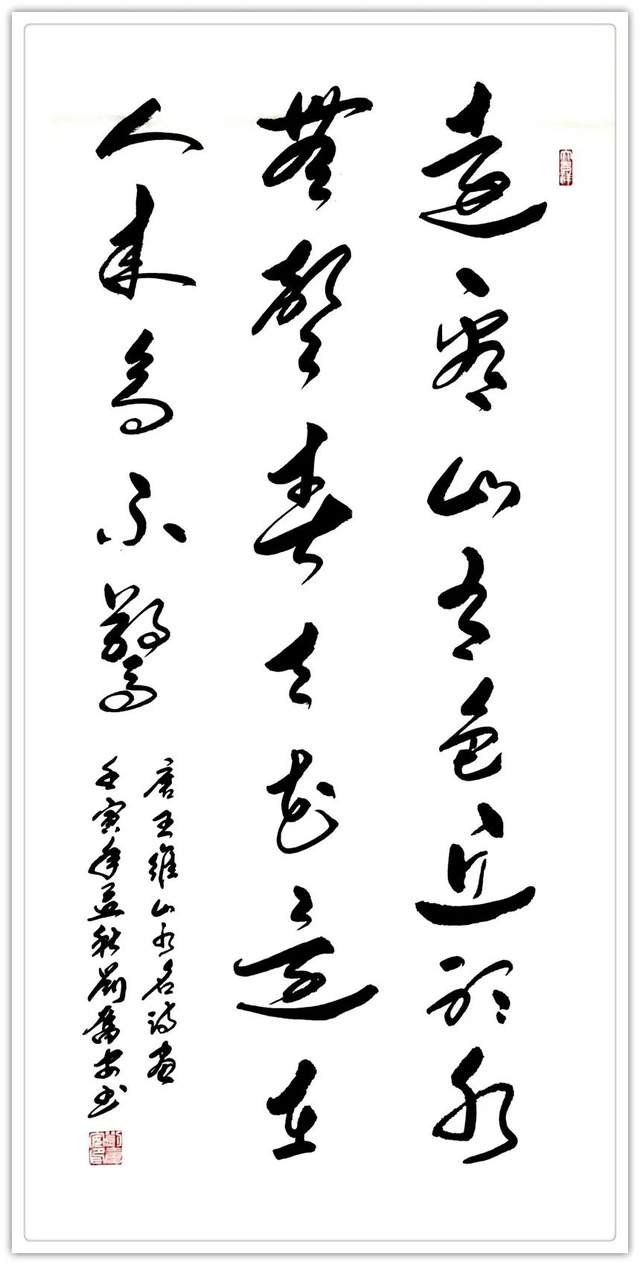 遠看山有色近聽水
無聲春去花還在
人來鳥不驚
唐王維山水名詩畫
壬寅年孟秋劉安書